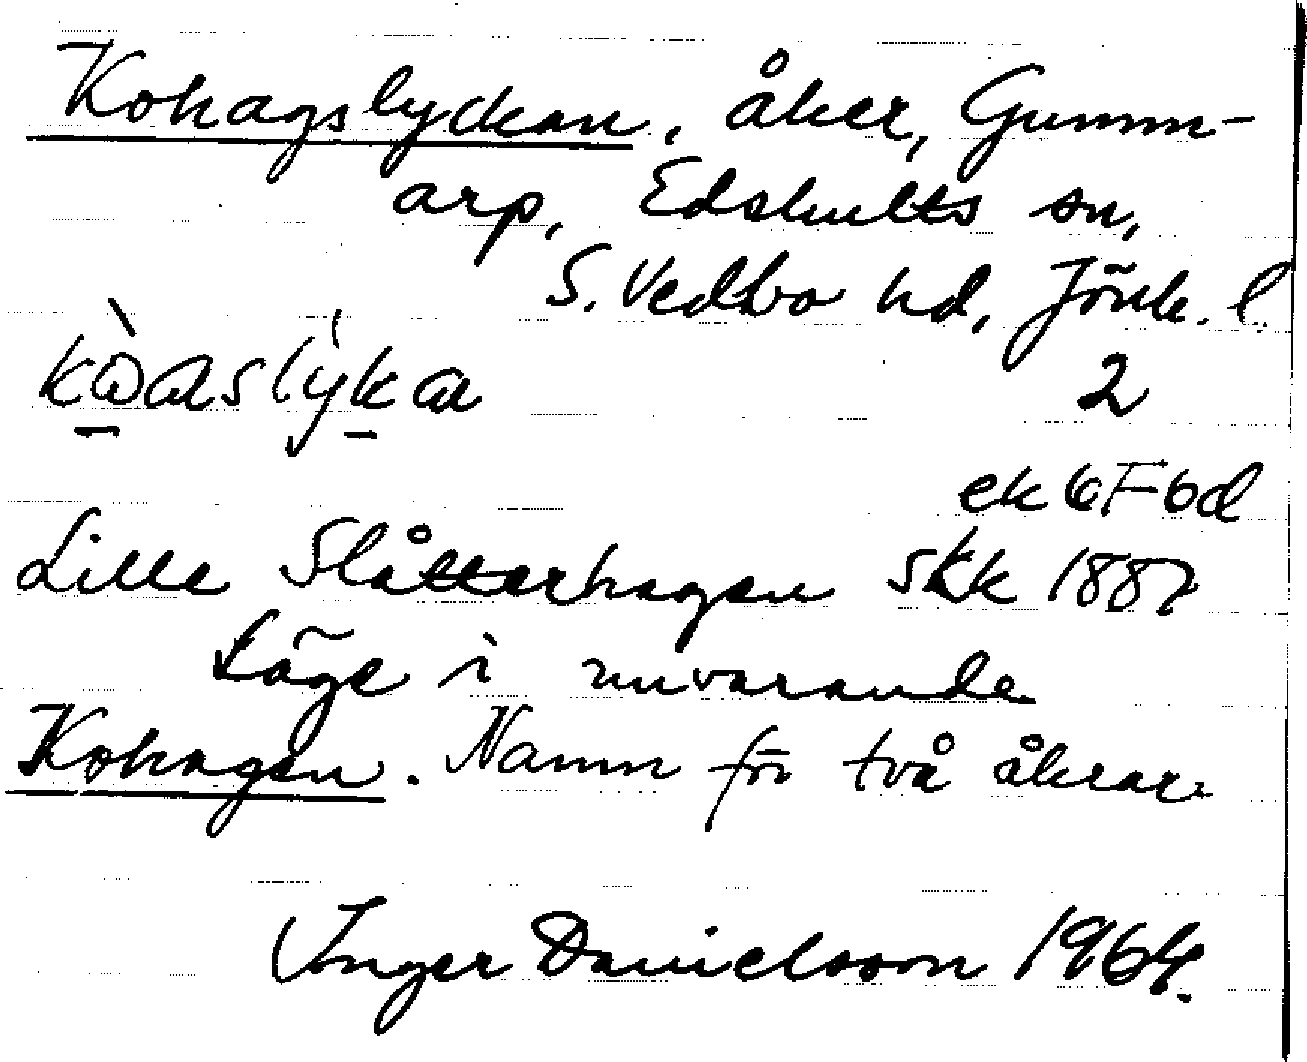 Kohagslyckan, åker, Gumm-
arp, Edshults sn,
S. Vedbo hd, Jönk. l.
2
ek 6F6d
Lille Slåtterhagen skk 1887
Läge i nuvarande
Kohagen. Namn för två åkrar.
Inger Danielsson 1964.